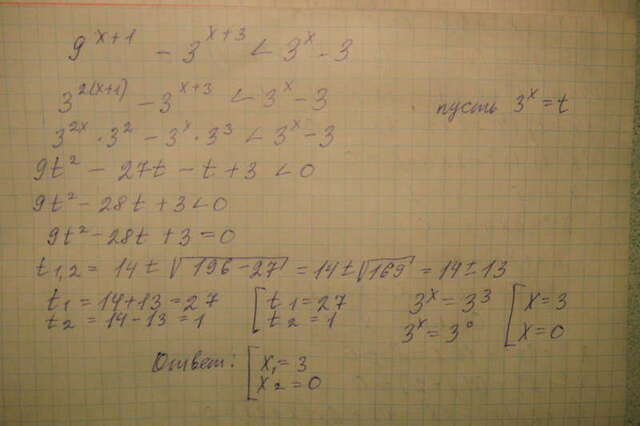 9^(x+1) - 3^(x+3) < 3^x - 3
3^(2(x+1)) - 3^(x+3) < 3^x - 3
пусть 3^x = t
3^(2x) · 3^2 - 3^x · 3^3 < 3^x - 3
9t^2 - 27t - t + 3 < 0
9t^2 - 28t + 3 < 0
9t^2 - 28t + 3 = 0
t1,2 = 14 ± √(196-27) = 14 ± √169 = 14 ± 13
t1 = 14+13 = 27 [ t1 = 27 3^x = 3^3 [ x = 3
t2 = 14-13 = 1 [ t2 = 1 3^x = 3^0 [ x = 0
Ответ: [ x1 = 3
x2 = 0